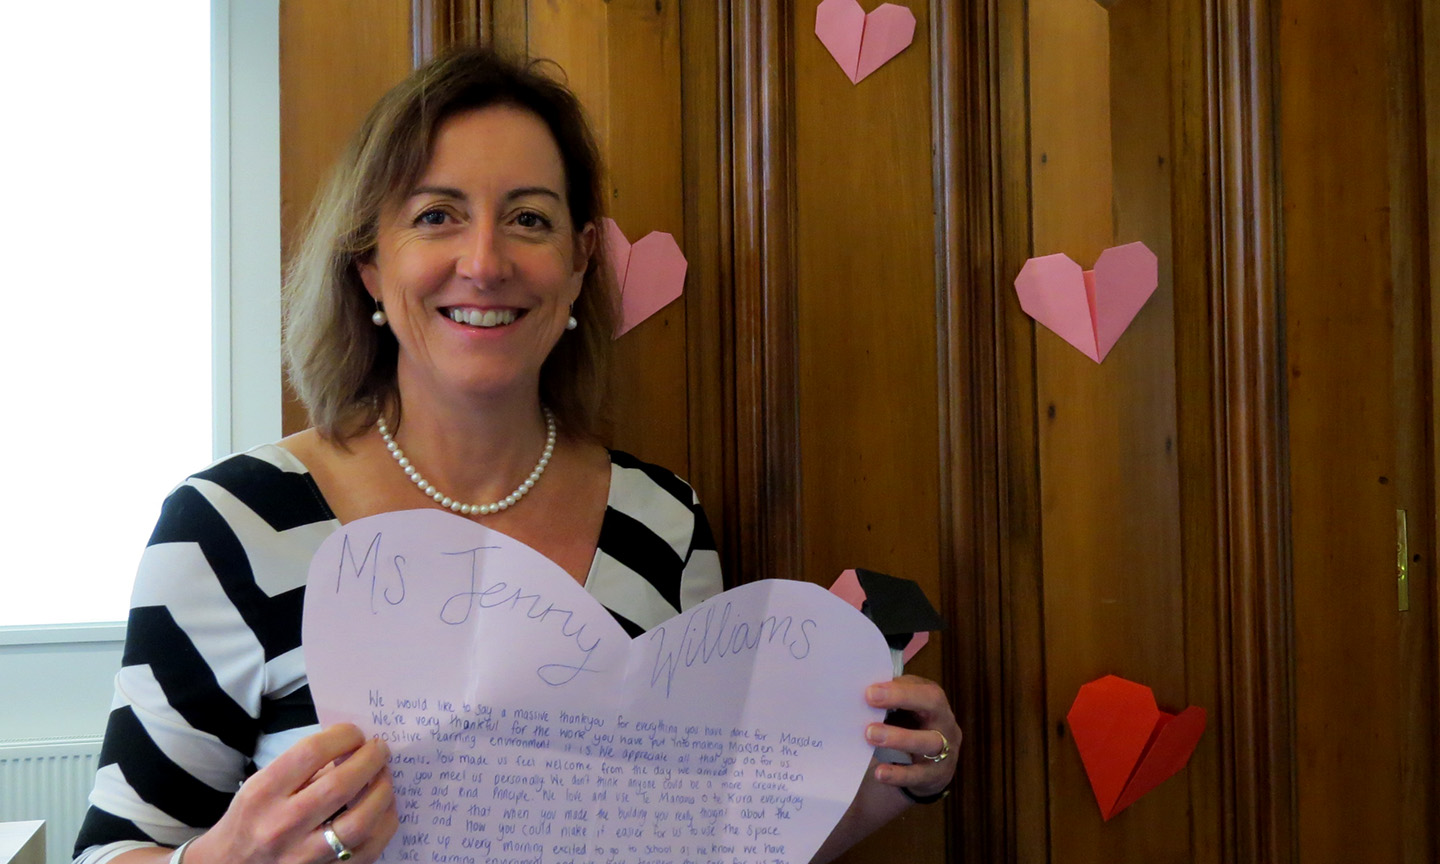 Ms Jenny
Williams
We would like to say a massive thankyou for everything you have done for Marsden
We're very thankful for the work you have put into making Marsden the
positive learning environment it is. We appreciate all that you do for us
students. You made us feel welcome from the day we arrived at Marsden
you meet us personally. We don't think anyone could be a more creative
and kind Principle. We love and use Te Manawa o te Kura everyday
We think that when you made the building you really thought about the
and how you could make it easier for us to use the space
wake up every morning excited to go to school as we know we have
a safe learning environment and